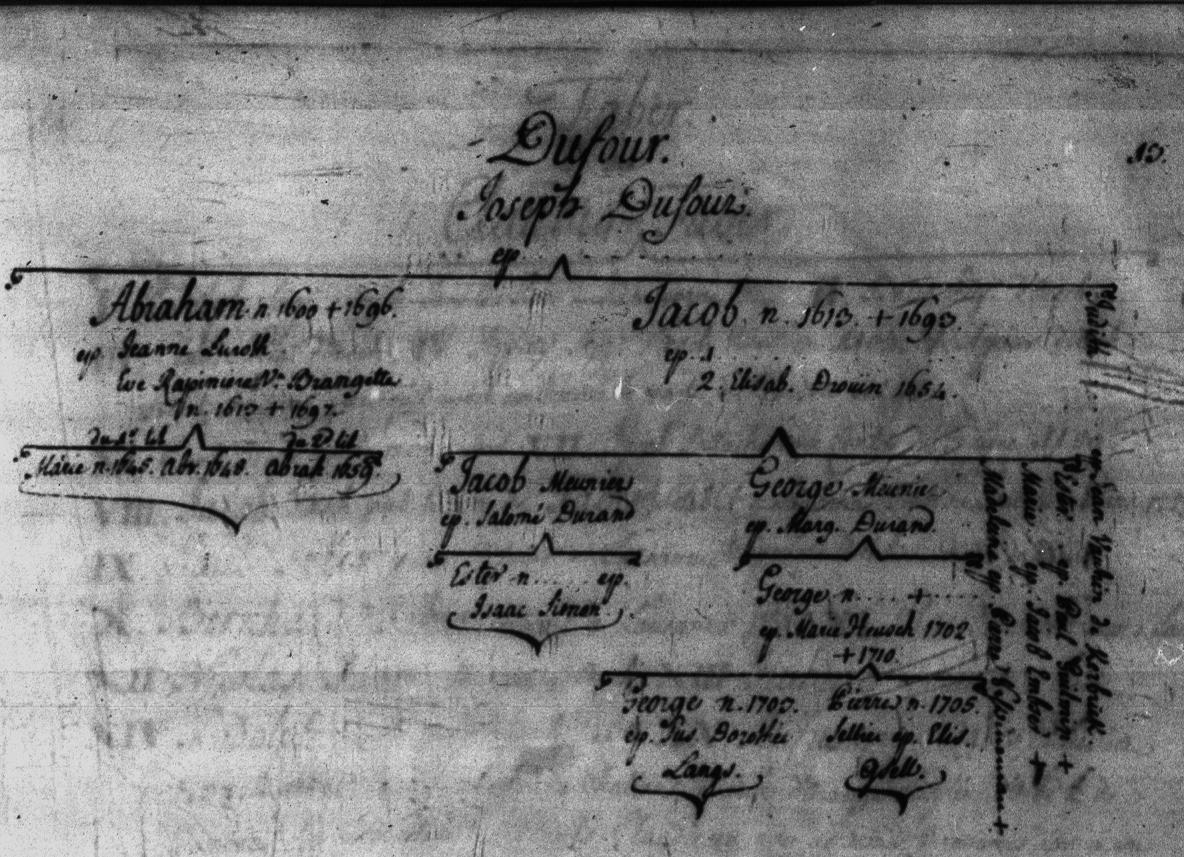 Dufour.
13.
Joseph Dufour.
ep. . . . . . . . . . . .
Abraham n 1600 + 1696.
ep Jeanne Luroth
Eve Rapiniere Ve Bramgetta
n. 1613 + 1697.
du 1r lit du 2d lit
Marie n. 1645. Abr. 1648. Abrah 1659
Jacob n. 1613. + 1693.
ep. 1. . . . . . . . . .
2. Elisab. Drouin 1654.
Judith
ep. Jean de
Jacob Meunier
ep. Salomé Durand
Ester n. . . . . . ep.
Isaac Simon
George Meunier
ep. Marg. Durand.
George n. . . . . + . . . . .
ep. Marie Heusch 1702
+ 1710.
George n. 1703.
ep. Sus. Dorothée
Langs.
Pierre n. 1705.
Sellier ep. Elis.
Gsell.
Madelaine ep. Pierre +
Marie ep. +
Ester ep. Paul +